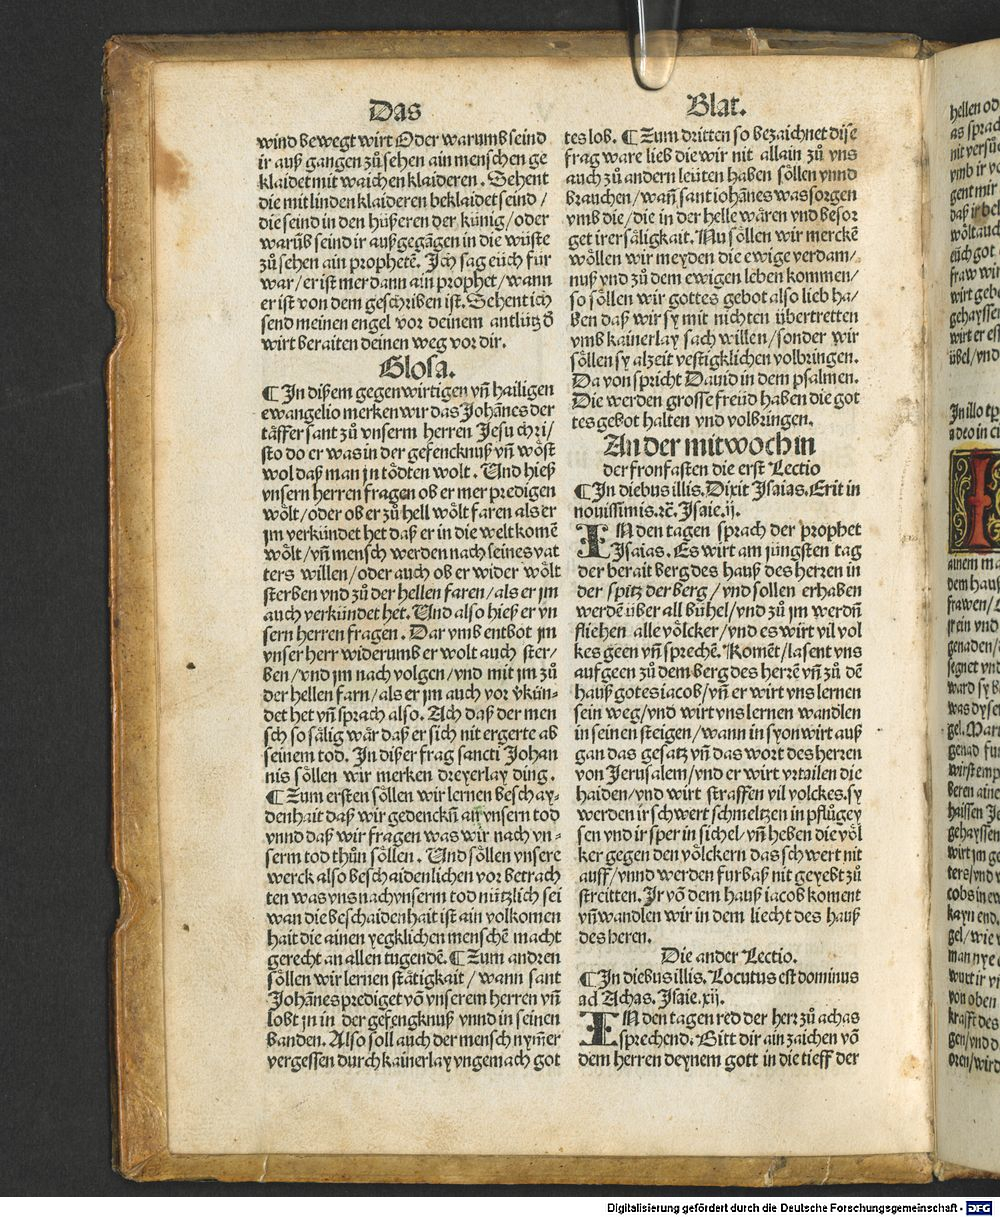 Das
wind bewegt wirt Oder warumb seind
ir auß gangen zů sehen ain menschen ge
klaidet mit waichen klaideren. Sehent
die mit linden klaideren beklaidet seind /
die seind in den hüßeren der künig / oder
warũb seind ir außgegãgen in die wüste
zů sehen ain prophetẽ. Jch sag eüch für
war / er ist mer dann ain prophet / wann
er ist von dem geschriben ist. Sehent ich
send meinen engel vor deinem antlütz ď
wirt beraiten deinen weg vor dir.
Glosa.
¶ Jn dißem gegenwirtigen vñ hailigen
ewangelio merken wir das Johãnes der
tåffer sant zů vnserm herren Jesu chri/
sto do er was in der gefencknuß vñ wöst
wol daß man jn tödten wolt. Und hieß
vnsern herren fragen ob er mer predigen
wölt / oder ob er zů hell wölt faren als er
jm verkündet het daß er in die welt komẽ
wölt / vñ mensch werden nach seines vat
ters willen / oder auch ob er wider wölt
sterben vnd zů der hellen faren / als er jm
auch verkündet het. Und also hieß er vn
sern herren fragen. Dar vmb entbot jm
vnser herr widerumb er wolt auch ster/
ben / vnd jm nach volgen / vnd mit jm zů
der hellen farn / als er jm auch vor v̓kün-
det het vñ sprach also. Ach daß der men
sch so sålig wår daß er sich nit ergerte ab
seinem tod. Jn dißer frag sancti Johan
nis söllen wir merken dreyerlay ding.
¶ Zum ersten söllen wir lernen beschay-
denhait daß wir gedenckñ an vnsern tod
vnnd daß wir fragen was wir nach vn-
serm tod thůn söllen. Und söllen vnsere
werck also beschaidenlichen vor betrach
ten was vns nach vnserm tod nützlich sei
wan die beschaidenhait ist ain volkomen
hait die ainen yegklichen menschẽ macht
gerecht an allen tugendẽ. ¶ Zum andren
söllen wir lernen ståtigkait / wann sant
Johãnes prediget võ vnserem herren vñ
lobt jn in der gefengknuß vnnd in seinen
banden. Also soll auch der mensch nym̃er
vergessen durch kainerlay vngemach got
Blat.
tes lob. ¶ Zum dritten so bezaichnet dise
frag ware lieb die wir nit allain zů vns
auch zů andern leüten haben söllen vnnd
brauchen / wañ sant iohãnes was sorgen
vmb die / die in der helle wåren vnd besor
get irer såligkait. Nu söllen wir merckẽ
wöllen wir meyden die ewige verdam/
nuß vnd zů dem ewigen leben kommen /
so söllen wir gottes gebot also lieb ha/
ben daß wir sy mit nichten übertretten
vmb kainerlay sach willen / sonder wir
söllen sy alzeit vestigklichen volbringen.
Da von spricht Dauid in dem psalmen.
Die werden grosse freüd haben die got
tes gebot halten vnd volbringen.
An der mitwoch in
der fronfasten die erst Lectio
¶ Jn diebus illis. Dixit Jsaias. Erit in
nouissimis. ꝛc̃. Jsaie. ij.
JN den tagen sprach der prophet
Jsaias. Es wirt am jüngsten tag
der berait berg des hauß des herren in
der spitz der berg / vnd sollen erhaben
werdẽ über all bühel / vnd zů jm werdñ
fliehen alle völcker / vnd es wirt vil vol
kes geen vñ sprechẽ. Komẽt / lasent vns
auf geen zů dem berg des herrẽ vñ zů dẽ
hauß gotes iacob / vñ er wirt vns lernen
sein weg / vnd wirt vns lernen wandlen
in seinen steigen / wann in syon wirt auß
gan das gesatz vñ das wort des herren
von Jerusalem / vnd er wirt vrtailen die
haiden / vnd wirt straffen vil volckes. sy
werden ir schwert schmeltzen in pflůgey
sen vnd ir sper in sichel / vñ heben die völ
ker gegen den völckern das schwert nit
auff / vnnd werden furbaß nit geyebt zů
streitten. Jr võ dem hauß iacob koment
vñ wandlen wir in dem liecht des hauß
des heren.
Die ander Lectio.
¶ Jn diebus illis. Locutus est dominus
ad Achas. Jsaie. xij.
JN den tagen red der herr zů achas
sprechend. Bitt dir ain zaichen võ
dem herren deynem gott in die tieff der
Digitalisierung gefördert durch die Deutsche Forschungsgemeinschaft - DFG